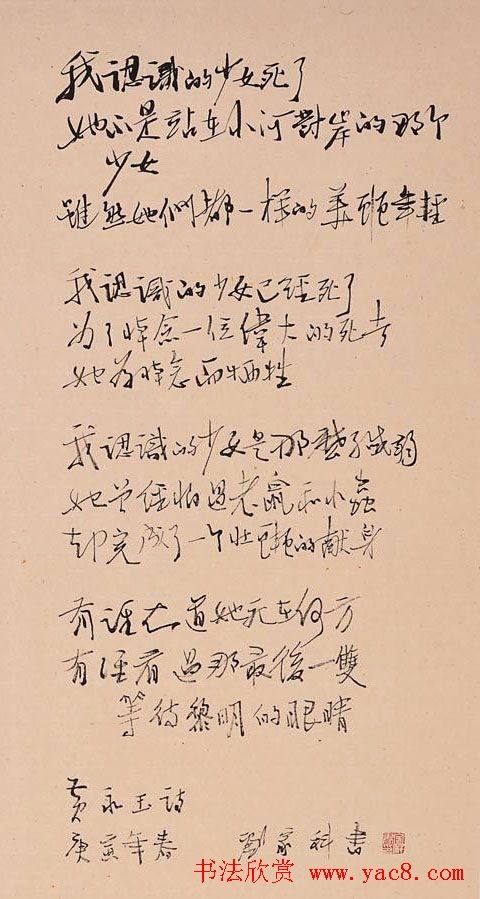 我認識的少女死了
她不是站在小河對岸的那个
少女
雖然她們都一样的美麗年輕
我認識的少女已經死了
为了悼念一位偉大的死者
她为悼念而牺牲
我認識的少女是那麽弱
她曾經怕過老鼠和小蟲
却完成了一个壮麗的献身
有誰知道她死在何方
有誰看過那最後一雙
等待黎明的眼睛
黃永玉詩
庚寅年春 劉家科書
书法欣赏 www.yac8.com